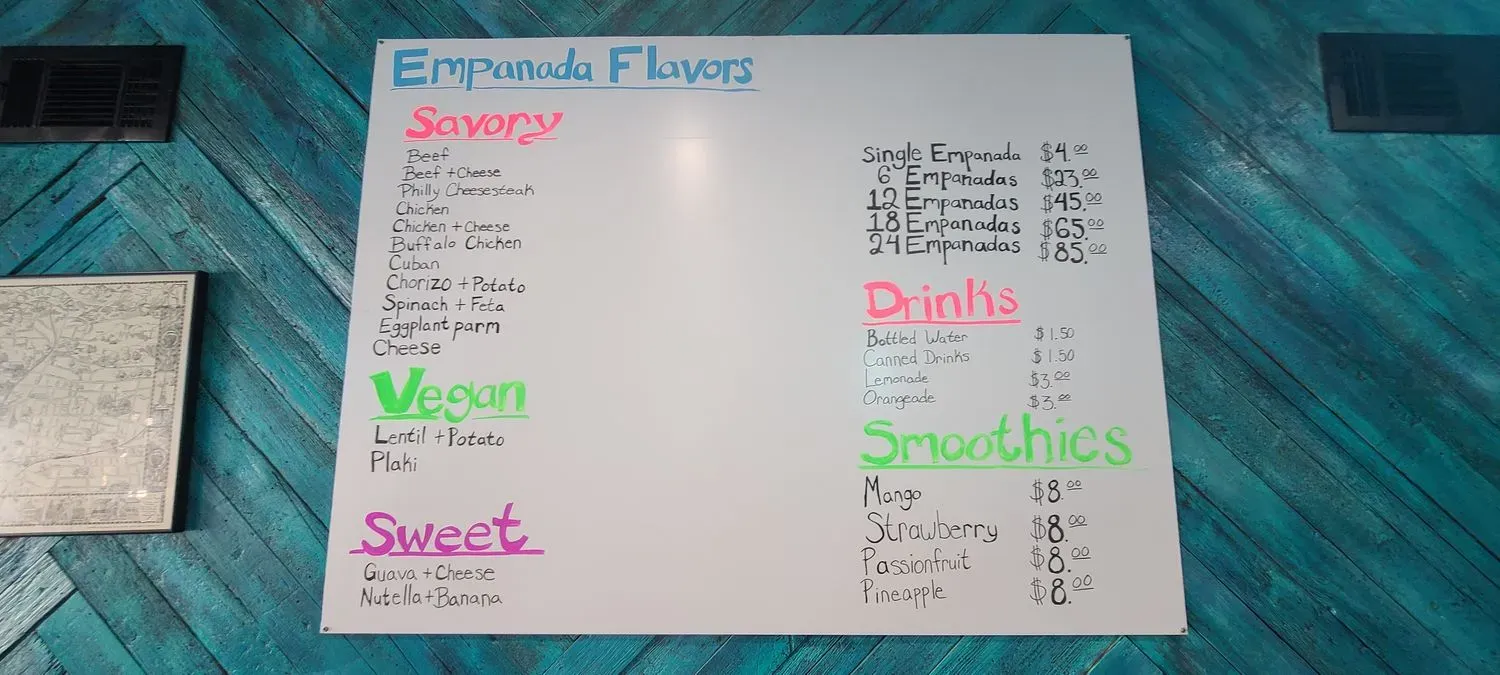 Empanada Flavors
Savory
Beef
Beef + Cheese
Philly Cheesesteak
Chicken
Chicken + Cheese
Buffalo Chicken
Cuban
Chorizo + Potato
Spinach + Feta
Eggplant parm
Cheese
Vegan
Lentil + Potato
Plaki
Sweet
Guava + Cheese
Nutella + Banana
Single Empanada $4.00
6 Empanadas $23.00
12 Empanadas $45.00
18 Empanadas $65.00
24 Empanadas $85.00
Drinks
Bottled Water $1.50
Canned Drinks $1.50
Lemonade $3.00
Orangeade $3.00
Smoothies
Mango $8.00
Strawberry $8.00
Passionfruit $8.00
Pineapple $8.00